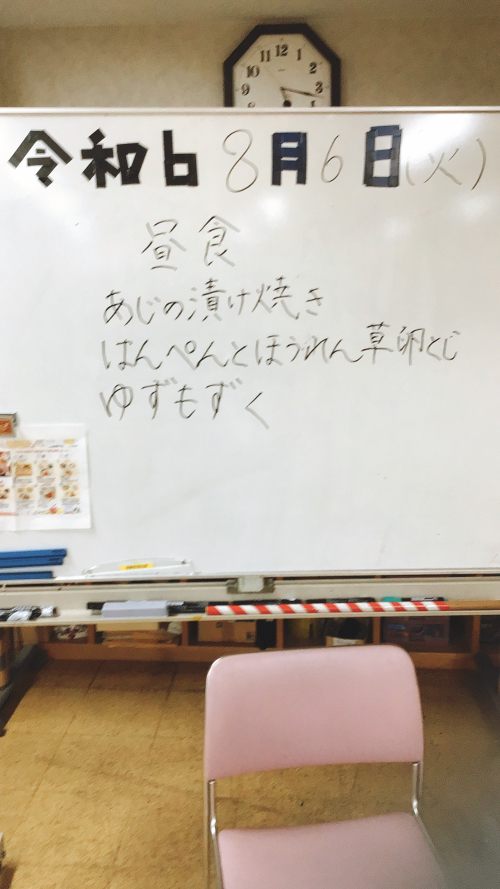 令和6 8月6日(火)
昼食
あじの漬け焼き
はんぺんとほうれん草卵とじ
ゆずもずく